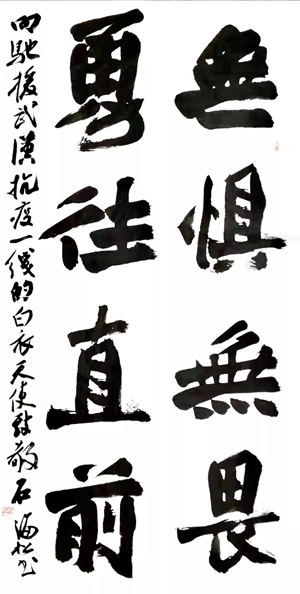 無惧無畏
勇往直前
向驰援武汉抗疫一线的白衣天使致敬 石海松书